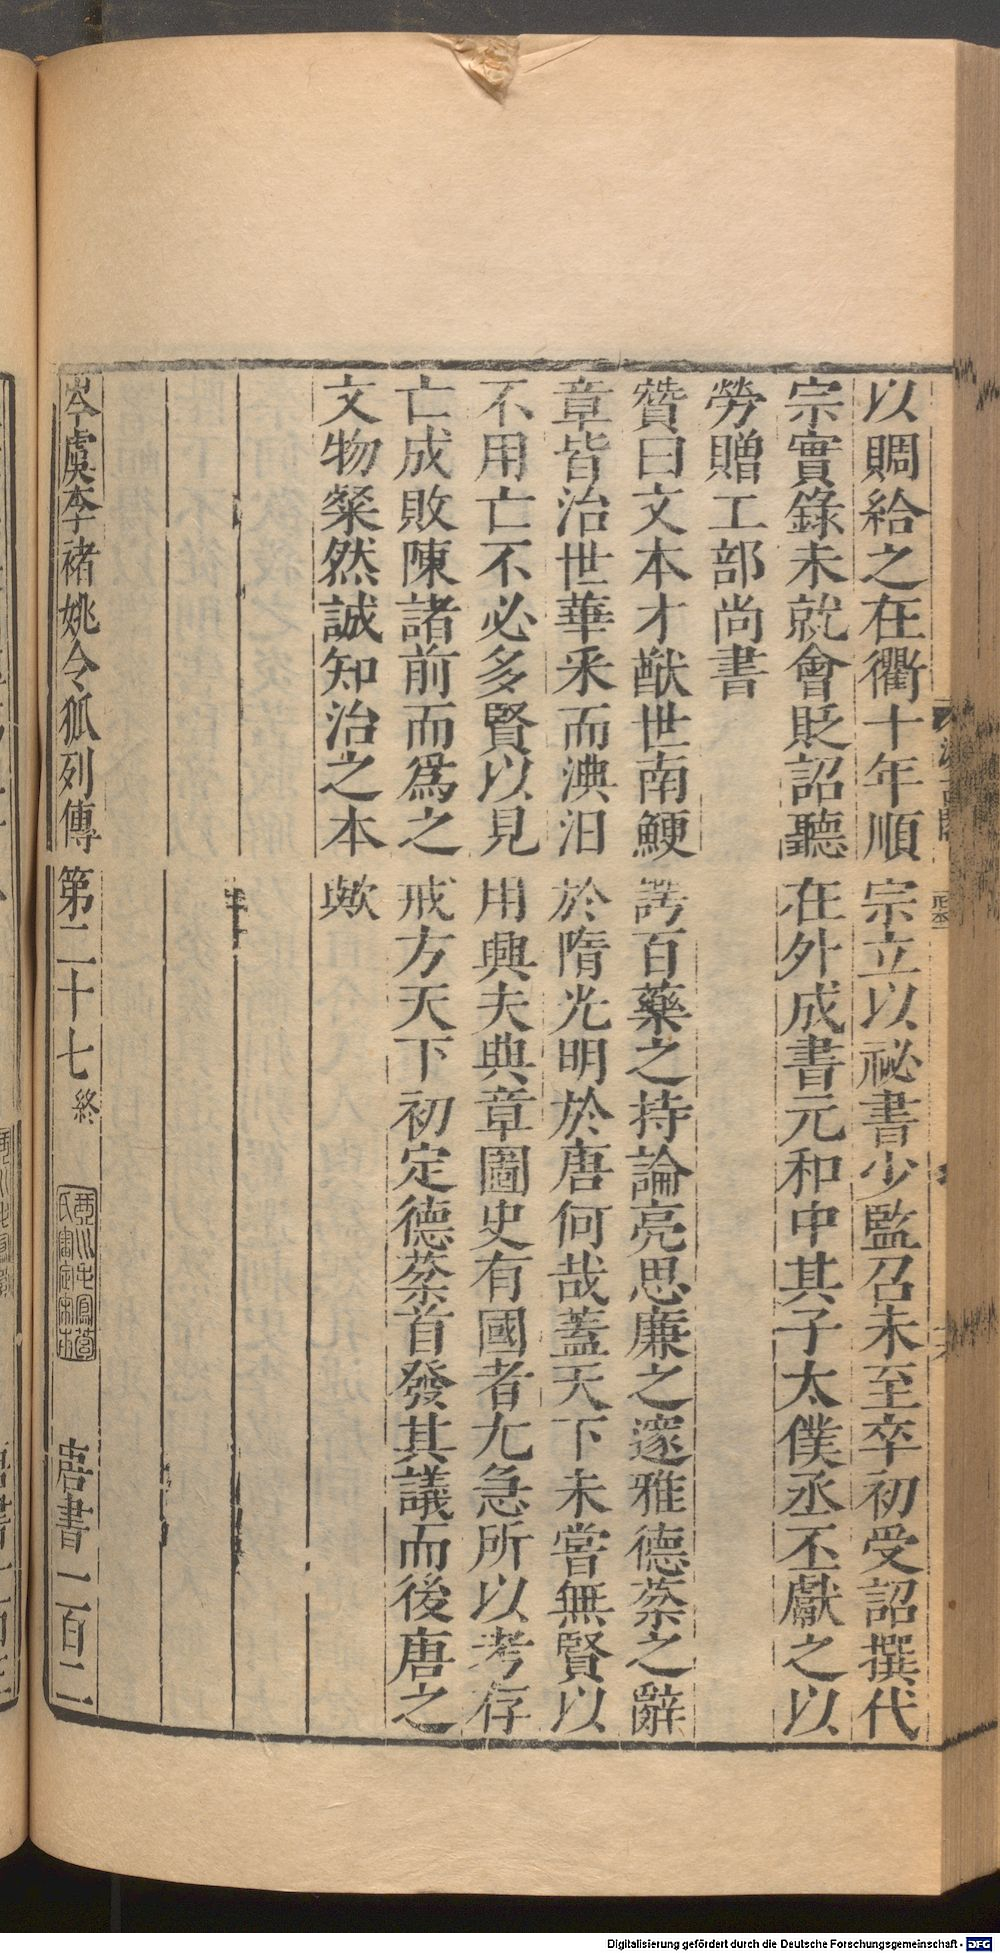 以賙給之在衢十年順宗立以祕書少監召未至卒初受詔撰代
宗實錄未就會貶詔聽在外成書元和中其子太僕丞丕獻之以
勞贈工部尚書
贊曰文本才猷世南鯁諤百藥之持論亮思廉之邃雅德棻之辭
章皆治世華釆而淟汨於隋光明於唐何哉蓋天下未嘗無賢以
不用亡不必多賢以見用興夫典章圖史有國者尤急所以考存
亡成敗陳諸前而爲之戒方天下初定德棻首發其議而後唐之
文物粲然誠知治之本歟
岑虞李褚姚令狐列傳第二十七終 唐書一百二
Digitalisierung gefördert durch die Deutsche Forschungsgemeinschaft - DFG